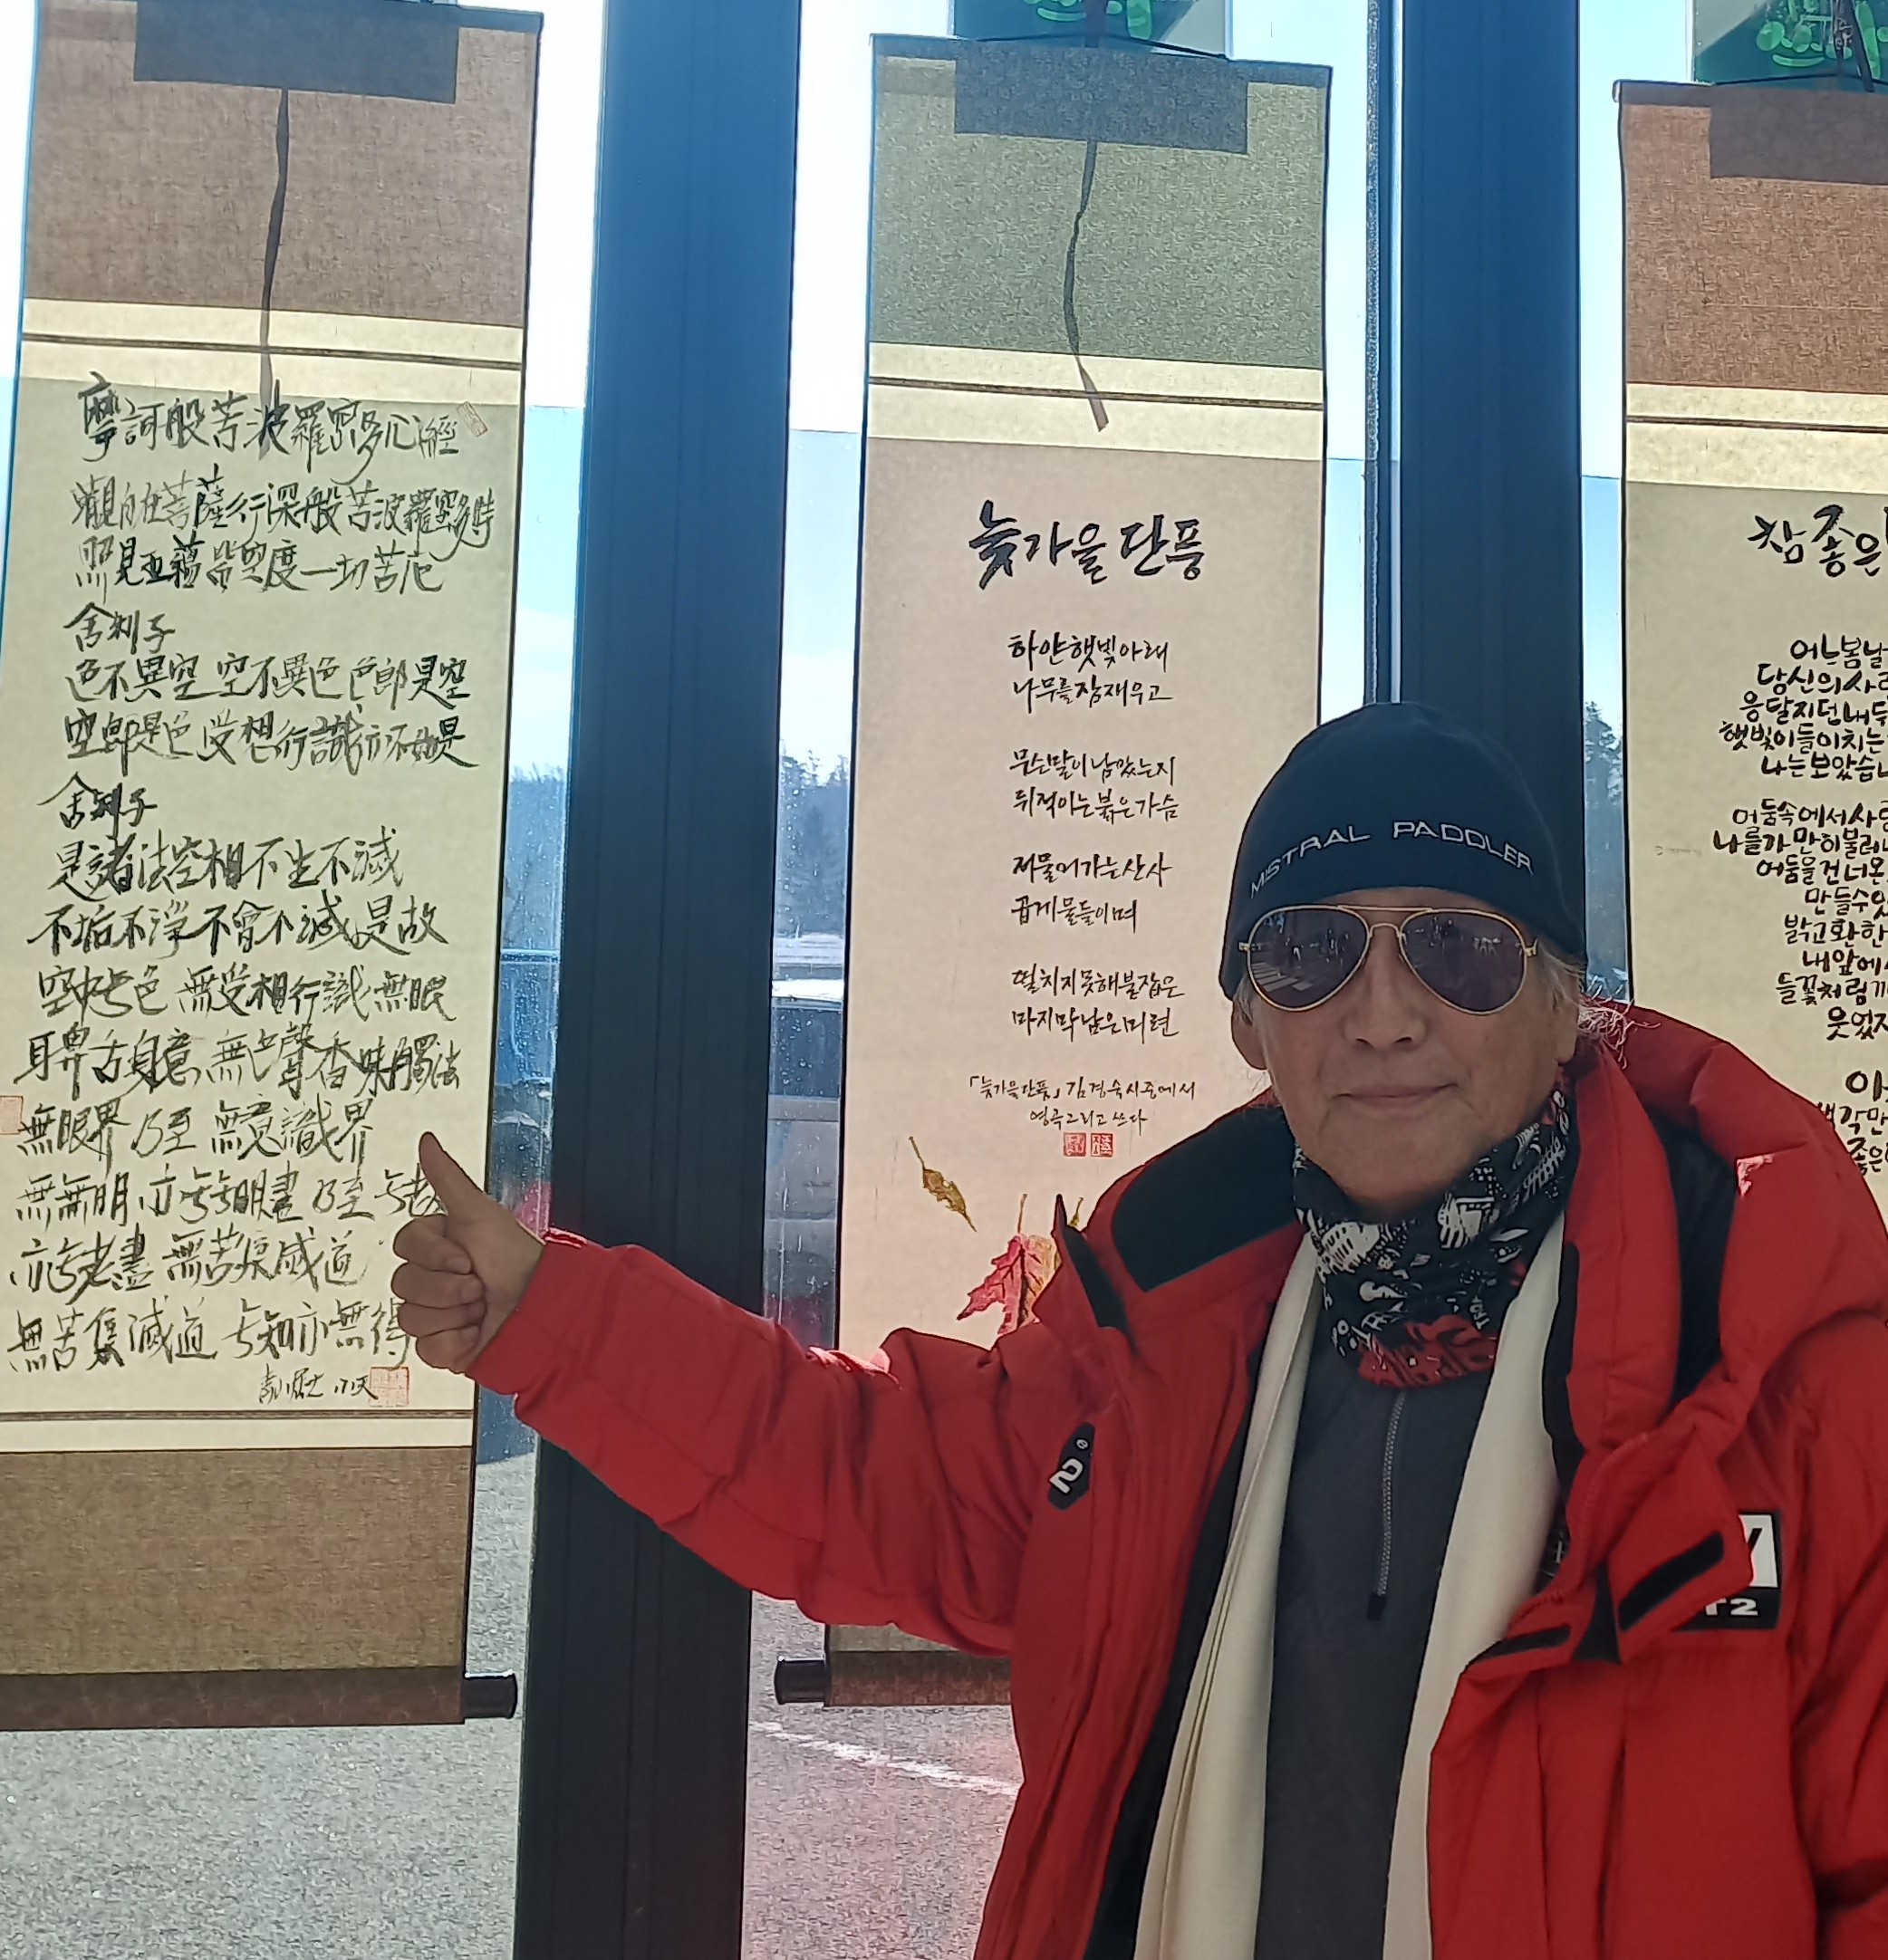 摩訶般若波羅密多心經
觀自在菩薩行深般若波羅密多時
照見五蘊皆空度一切苦厄
舍利子
色不異空 空不異色 色卽是空
空卽是色 受想行識 亦不如是
舍利子
是諸法空相 不生不滅
不垢不淨 不曾不滅 是故
空中无色 無受相行識 無眼
耳鼻舌身意 無色聲香味觸法
無眼界 乃至 無意識界
無無明 亦无无明盡 乃至 无老
亦无老盡 無苦集滅道
無苦集滅道 无知亦無得
늦가을 단풍
하얀 햇빛 아래
나무를 잠재우고
무슨 말이 남았는지
뒤척이는 붉은 가슴
저물어가는 산사
곱게 물들이며
떨치지 못해 붙잡은
마지막 남은 미련
「늦가을 단풍」 김경숙 시 중에서
영곡 그리고 쓰다
참 좋은
어느 봄날
당신의 사
응달지던 내 뒤
햇빛이 들이치는
나는 보았습니
어둠 속에서 사
나를 가만히 불러내
어둠을 건너온
만들 수 있
밝고 환한
내 앞에
들꽃처럼
웃었지
생각만
좋은
MISTRAL PADDLER
2
T2